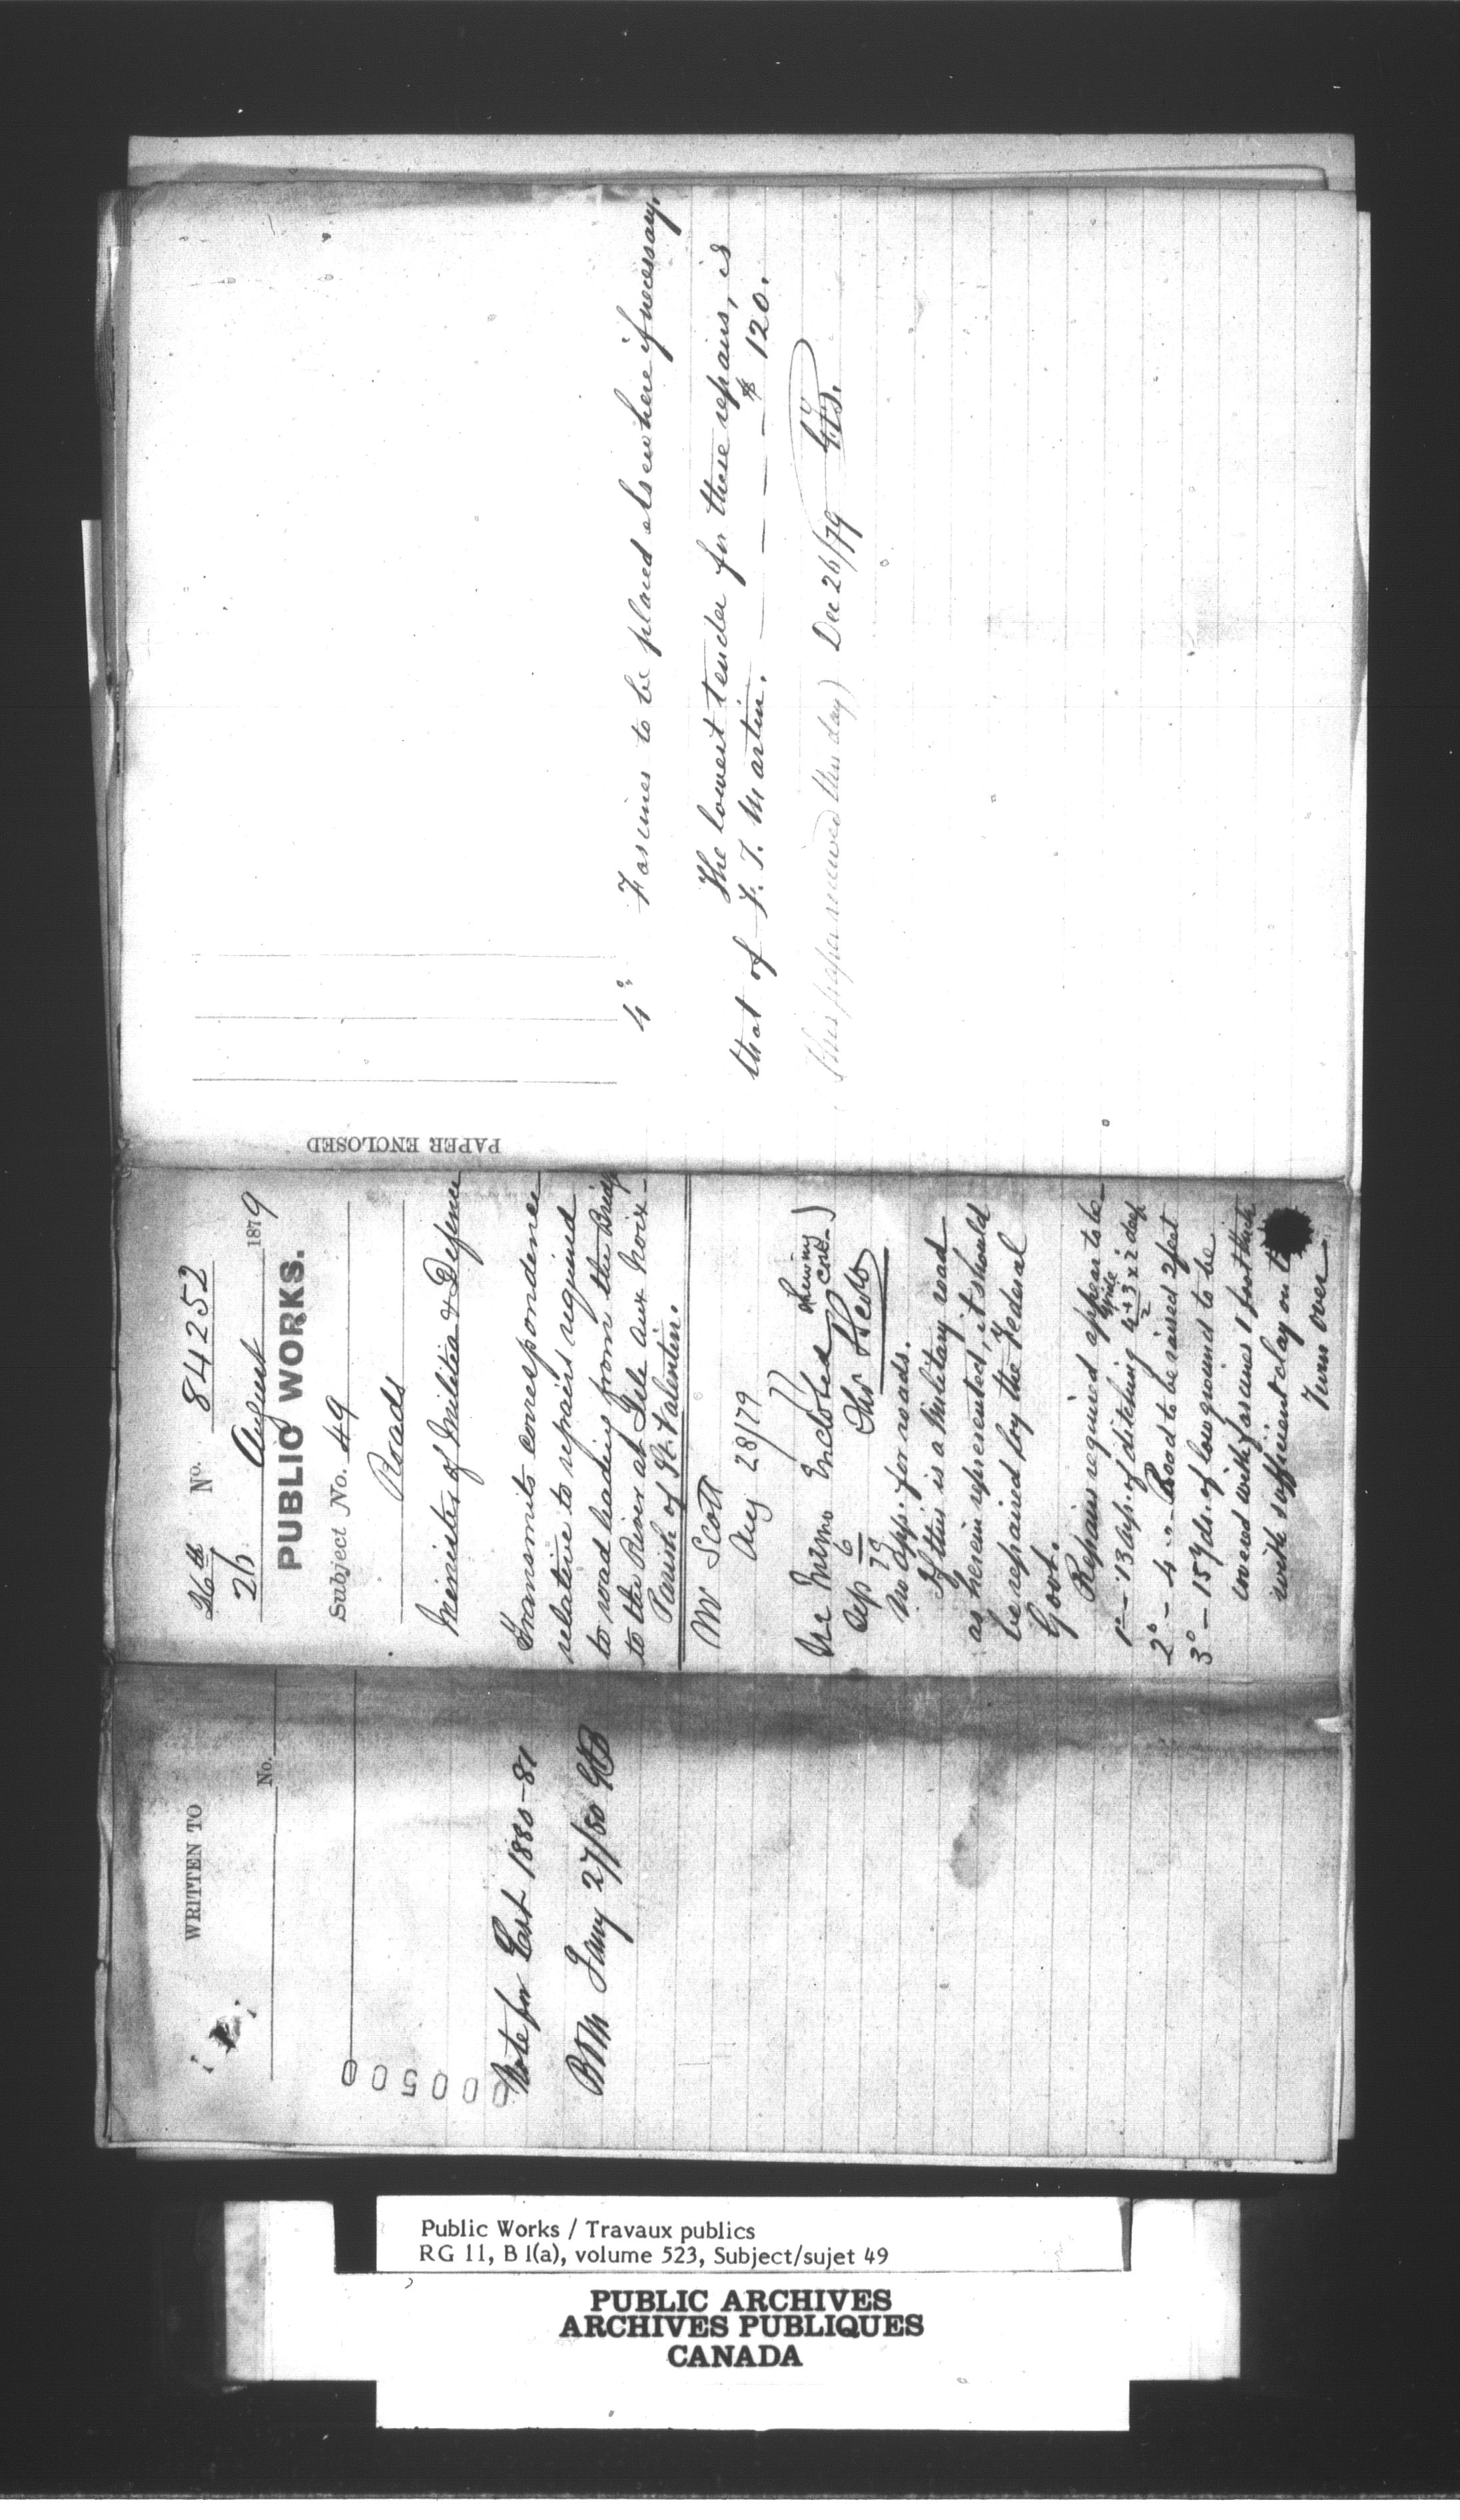 WRITTEN TO
No.
000500
Note for Est. 1880-81
Jany 27/80
26th No. 84252
26 August 1879
PUBLIC WORKS.
Subject No. 49
Roads
Minister of Militia & Defence
Transmits correspondence
relative to repairs required
to road leading from the Bridge
to the River at Isle aux Noix
Parish of St. Valentin.
Mr Scott
Aug 28/79
See Memo Enclosed
Sep 6/79
Thos Scott
No app. for roads.
If this is a military road
as herein represented, it should
be repaired by the Federal
Govt.
Repairs required appear to be
1° - 13 Arps. of ditching 4 + 3 x 2 deep
2
wide
2° - 4 " - Road to be raised 2 feet
3° - 15 yds. of low ground to be
covered with fascines 1 foot thick
with sufficient clay on t
Turn over
PAPER ENCLOSED
4° Fascines to be placed elsewhere if necessary.
The lowest tender for these repairs, is
that of F. T. Martin. $120.
This paper received this day) Dec 26/79
Public Works / Travaux publics
RG 11, B 1(a), volume 523, Subject/sujet 49
PUBLIC ARCHIVES
ARCHIVES PUBLIQUES
CANADA